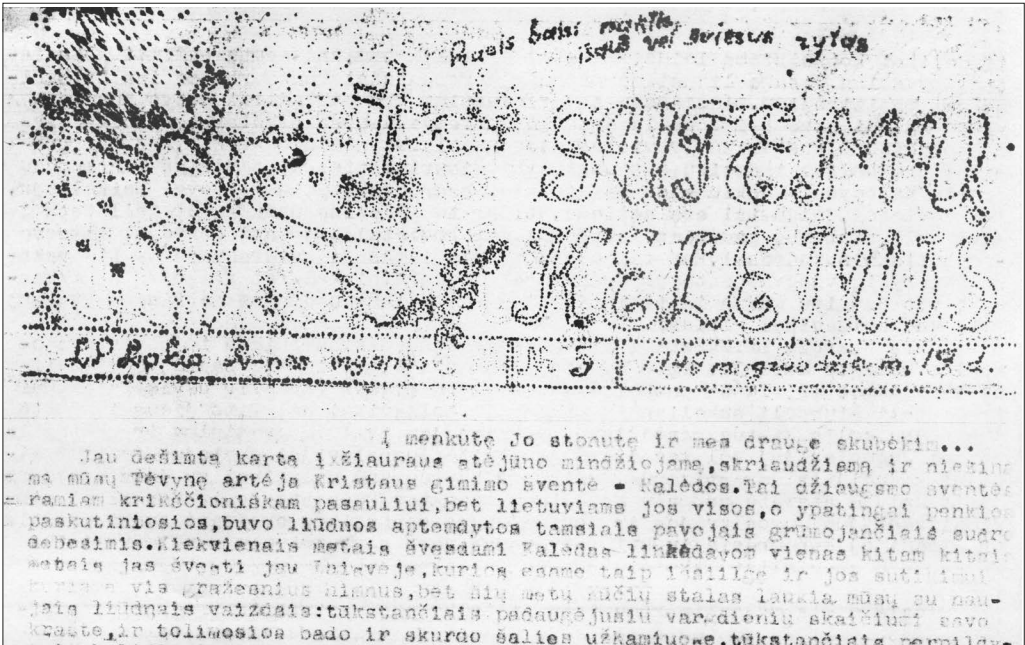 baisi naktis,
išauš vėl šviesus rytas
SUTEMŲ
KELEIVIS
LP organas № 5 1948 m. gruodžio m. 19 d.
Į menkutę Jo stonutę ir mes drauge skubėkim...
Jau dešimtą kartą į žiauraus atėjūno mindžiojamą,skriaudžiamą ir niekina
mą mūsų Tėvynę artėja Kristaus gimimo šventė - Kalėdos.Tai džiaugsmo šventės
ramiam krikščioniškam pasauliui,bet lietuviams jos visos,o ypatingai penkios
paskutiniosios,buvo liūdnos aptemdytos tamsiais pavojais grūmojančiais
debesimis.Kiekvienais metais švęsdami Kalėdas linkėdavom vienas kitam kitais
metais jas švęsti jau Laisvėje,kurios esame taip išsiilgę ir jos sutikimui
kuriame vis gražesnius himnus,bet šių metų Kūčių stalas laukia mūsų su nau-
jais liūdnais vaizdais:tūkstančiais padaugėjusių vardieniu skaičiumi savo
krašte,ir tolimosios bado ir skurdo šalies užkampiuose,tūkstančiais